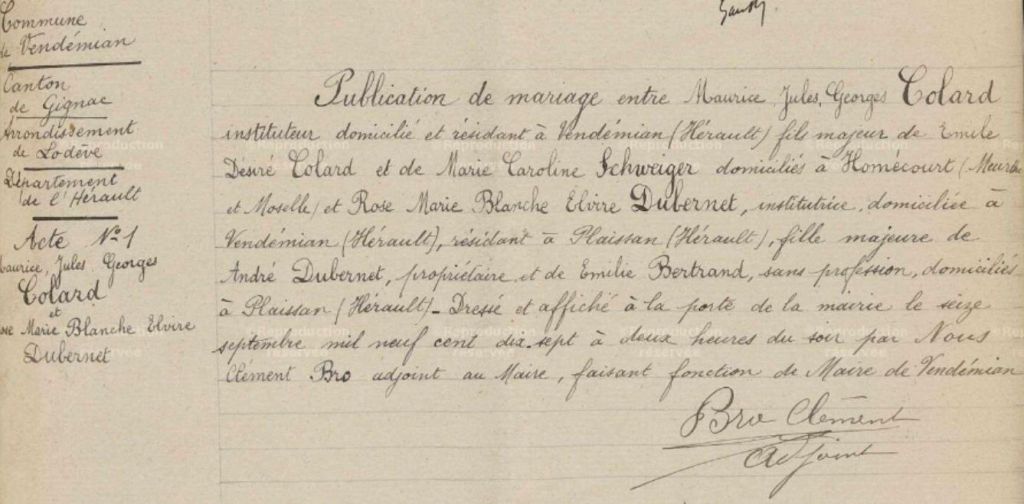 Commune
de Vendémian
Canton
de Gignac
Arrondissement
de Lodève
Département
de l'Hérault
Acte No 1
Maurice, Jules Georges
Colard
et
Rose Marie Blanche Elvire
Dubernet
Publication de mariage entre Maurice, Jules, Georges Colard
instituteur domicilié et résidant à Vendémian (Hérault) fils majeur de Emile
Désiré Colard et de Marie Caroline Schweiger domiciliés à Homécourt (Meurthe
et Moselle) et Rose Marie Blanche Elvire Dubernet, institutrice, domiciliée à
Vendémian (Hérault), résidant à Plaissan (Hérault), fille majeure de
André Dubernet, propriétaire et de Emilie Bertrand, sans profession, domiciliés
à Plaissan (Hérault) - Dressé et affiché à la porte de la mairie le seize
septembre mil neuf cent dix-sept à deux heures du soir par Nous
Clément Bro adjoint au Maire, faisant fonction de Maire de Vendémian
Bro Clément
adjoint